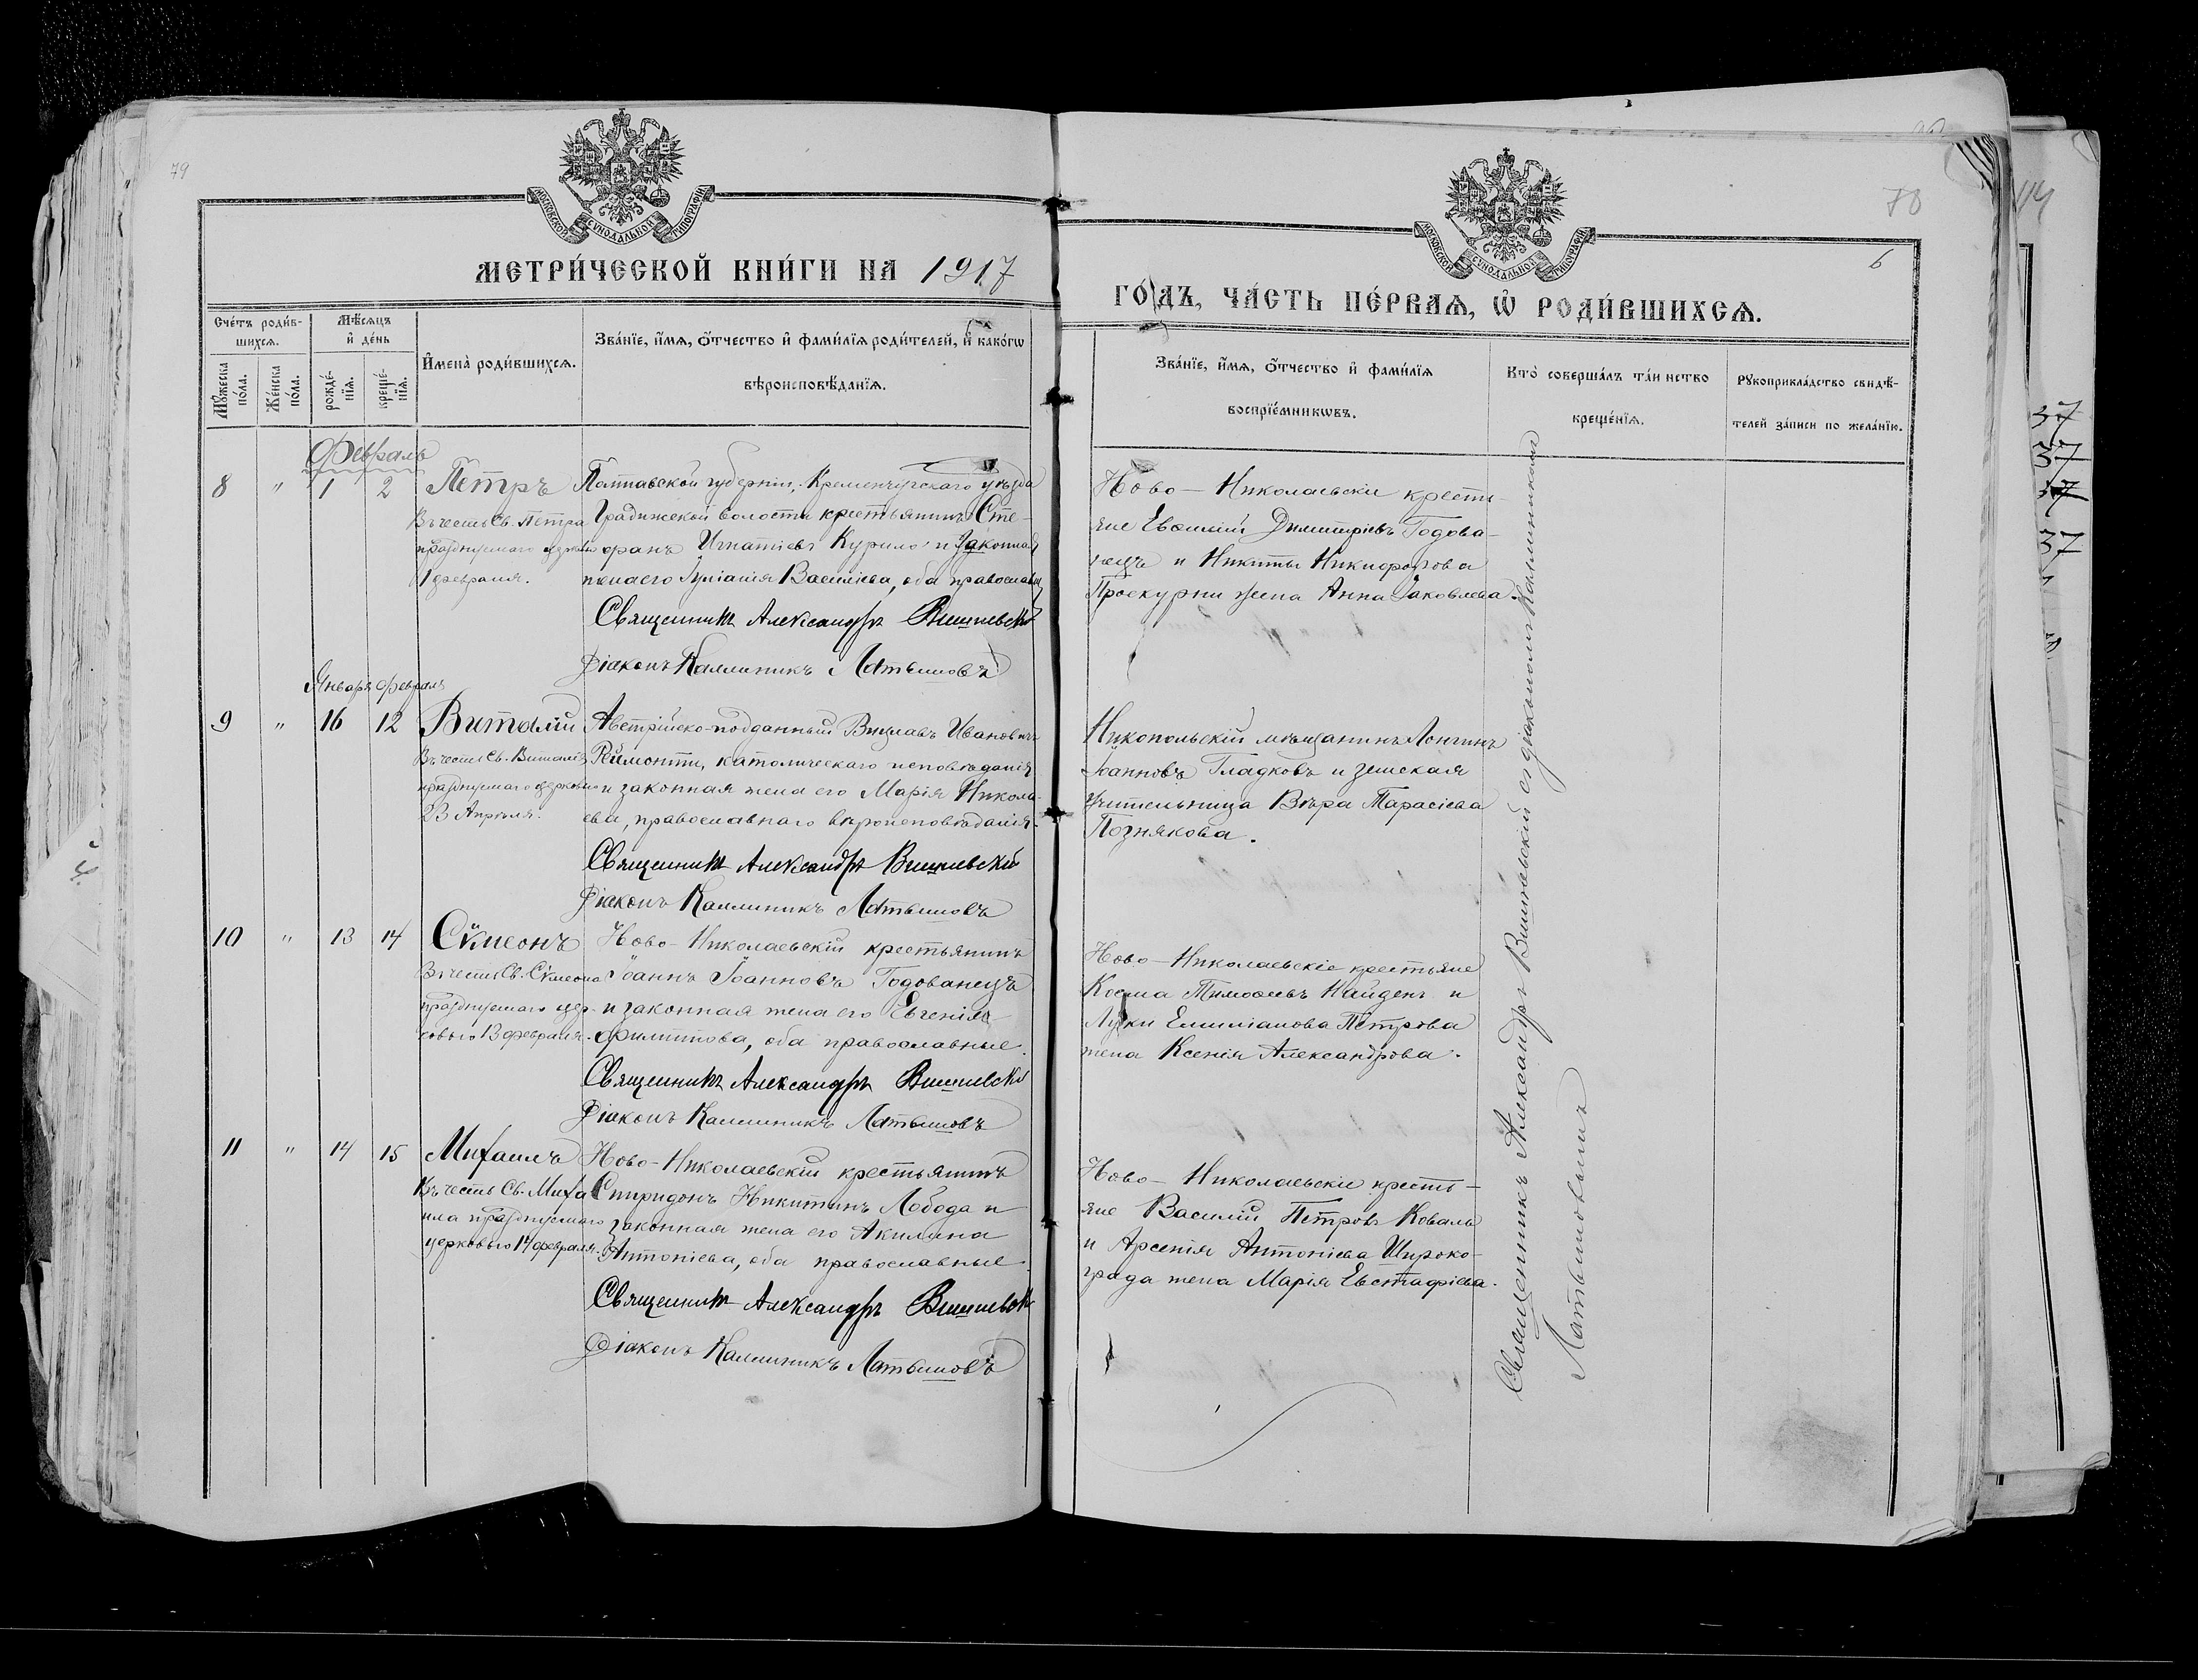 79
МОСКОВСКОЙ СУНОДАЛЬНОЙ ТИПОГРАФІИ
МЕТРИ́ЧЕСКОЙ КНИ́ГИ НА 1917
Сче́тъ роди́в-
шихся.
Мѣ́сяцъ
и҆ де́нь
Мꙋжеска по́ла.
Же́нска по́ла.
рожде́-
нїя.
креще́-
нїя.
И҆мена̀ роди́вшихся.
Зва́нїе, и҆́мя, ѻ҆́тчество и҆ фами́лїя роди́телей, и҆ како́гѡ
вѣроисповѣ́данїя.
Февраль
8 " 1 2 Петръ
Въ честь Св. Петра
празднуемаго церковью
1 февраля.
Полтавской губерніи, Кременчугскаго уѣзда
Градижской волости крестьянинъ Сте-
фанъ Игнатіевъ Курило и законная
жена его Іуліанія Василіева, оба православн
Священникъ Александръ Вишневскій
Діаконъ Каллиникъ Латышовъ
Января Февраля
9 " 16 12 Виталій
Въ честь Св. Виталія
празднуемаго церковью
23 Апрѣля.
Австрійско-подданный Вицлавъ Ивановичъ
Реймонтъ, католическаго исповѣданія
и законная жена его Марія Никола-
ева, православнаго вѣроисповѣданія.
Священникъ Александръ Вишневскій
Діаконъ Каллиникъ Латышовъ
10 " 13 14 Сѵмеонъ
Въ честь Св. Сѵмеона
празднуемаго цер-
ковью 13 февраля.
Ново-Николаевскій крестьянинъ
Іоаннъ Іоанновъ Годованецъ
и законная жена его Евгенія
Филиппова, оба православные.
Священникъ Александръ Вишневскій
Діаконъ Каллиникъ Латышовъ
11 " 14 15 Михаилъ
Въ честь Св. Миха
ила празднуемаго
церковью 14 февраля.
Ново-Николаевскій крестьянинъ
Спиридонъ Никитинъ Лобода и
законная жена его Акилина
Антоніева, оба православные.
Священникъ Александръ Вишневскій
Діаконъ Каллиникъ Латышовъ
70
6
МОСКОВСКОЙ СУНОДАЛЬНОЙ ТИПОГРАФІИ
ГО́ДЪ, ЧА́СТЬ ПЕ́РВАѦ, Ѡ҆ РОДИ́ВШИХСѦ.
Зва́нїе, и҆́мя, ѻ҆́тчество и҆ фами́лїя
воспрїе́мникѡвъ.
Кто̀ соверша́лъ та́инство
креще́нїя.
Рꙋкоприкла́дство свидѣ́-
телей за́писи по жела́нїю.
Ново-Николаевскіе кресть-
яне Евѳимій Димитріевъ Годова-
нецъ и Никиты Никифорова
Проскурни жена Анна Іаковлева.
Никопольскій мѣщанинъ Лонгинъ
Іоанновъ Гладковъ и земская
учительница Вѣра Тарасіева
Познякова.
Ново-Николаевскіе крестьяне
Косма Тимоѳеевъ Найденъ и
Луки Емиліанова Петрова
жена Ксенія Александрова.
Ново-Николаевскіе кресть-
яне Василій Петровъ Коваль
и Арсенія Антоніева Широко-
града жена Марія Евстафіева.
Священникъ Александръ Вишневскій съ діакономъ Каллиникомъ
Латышовымъ
114
37
37
37
37